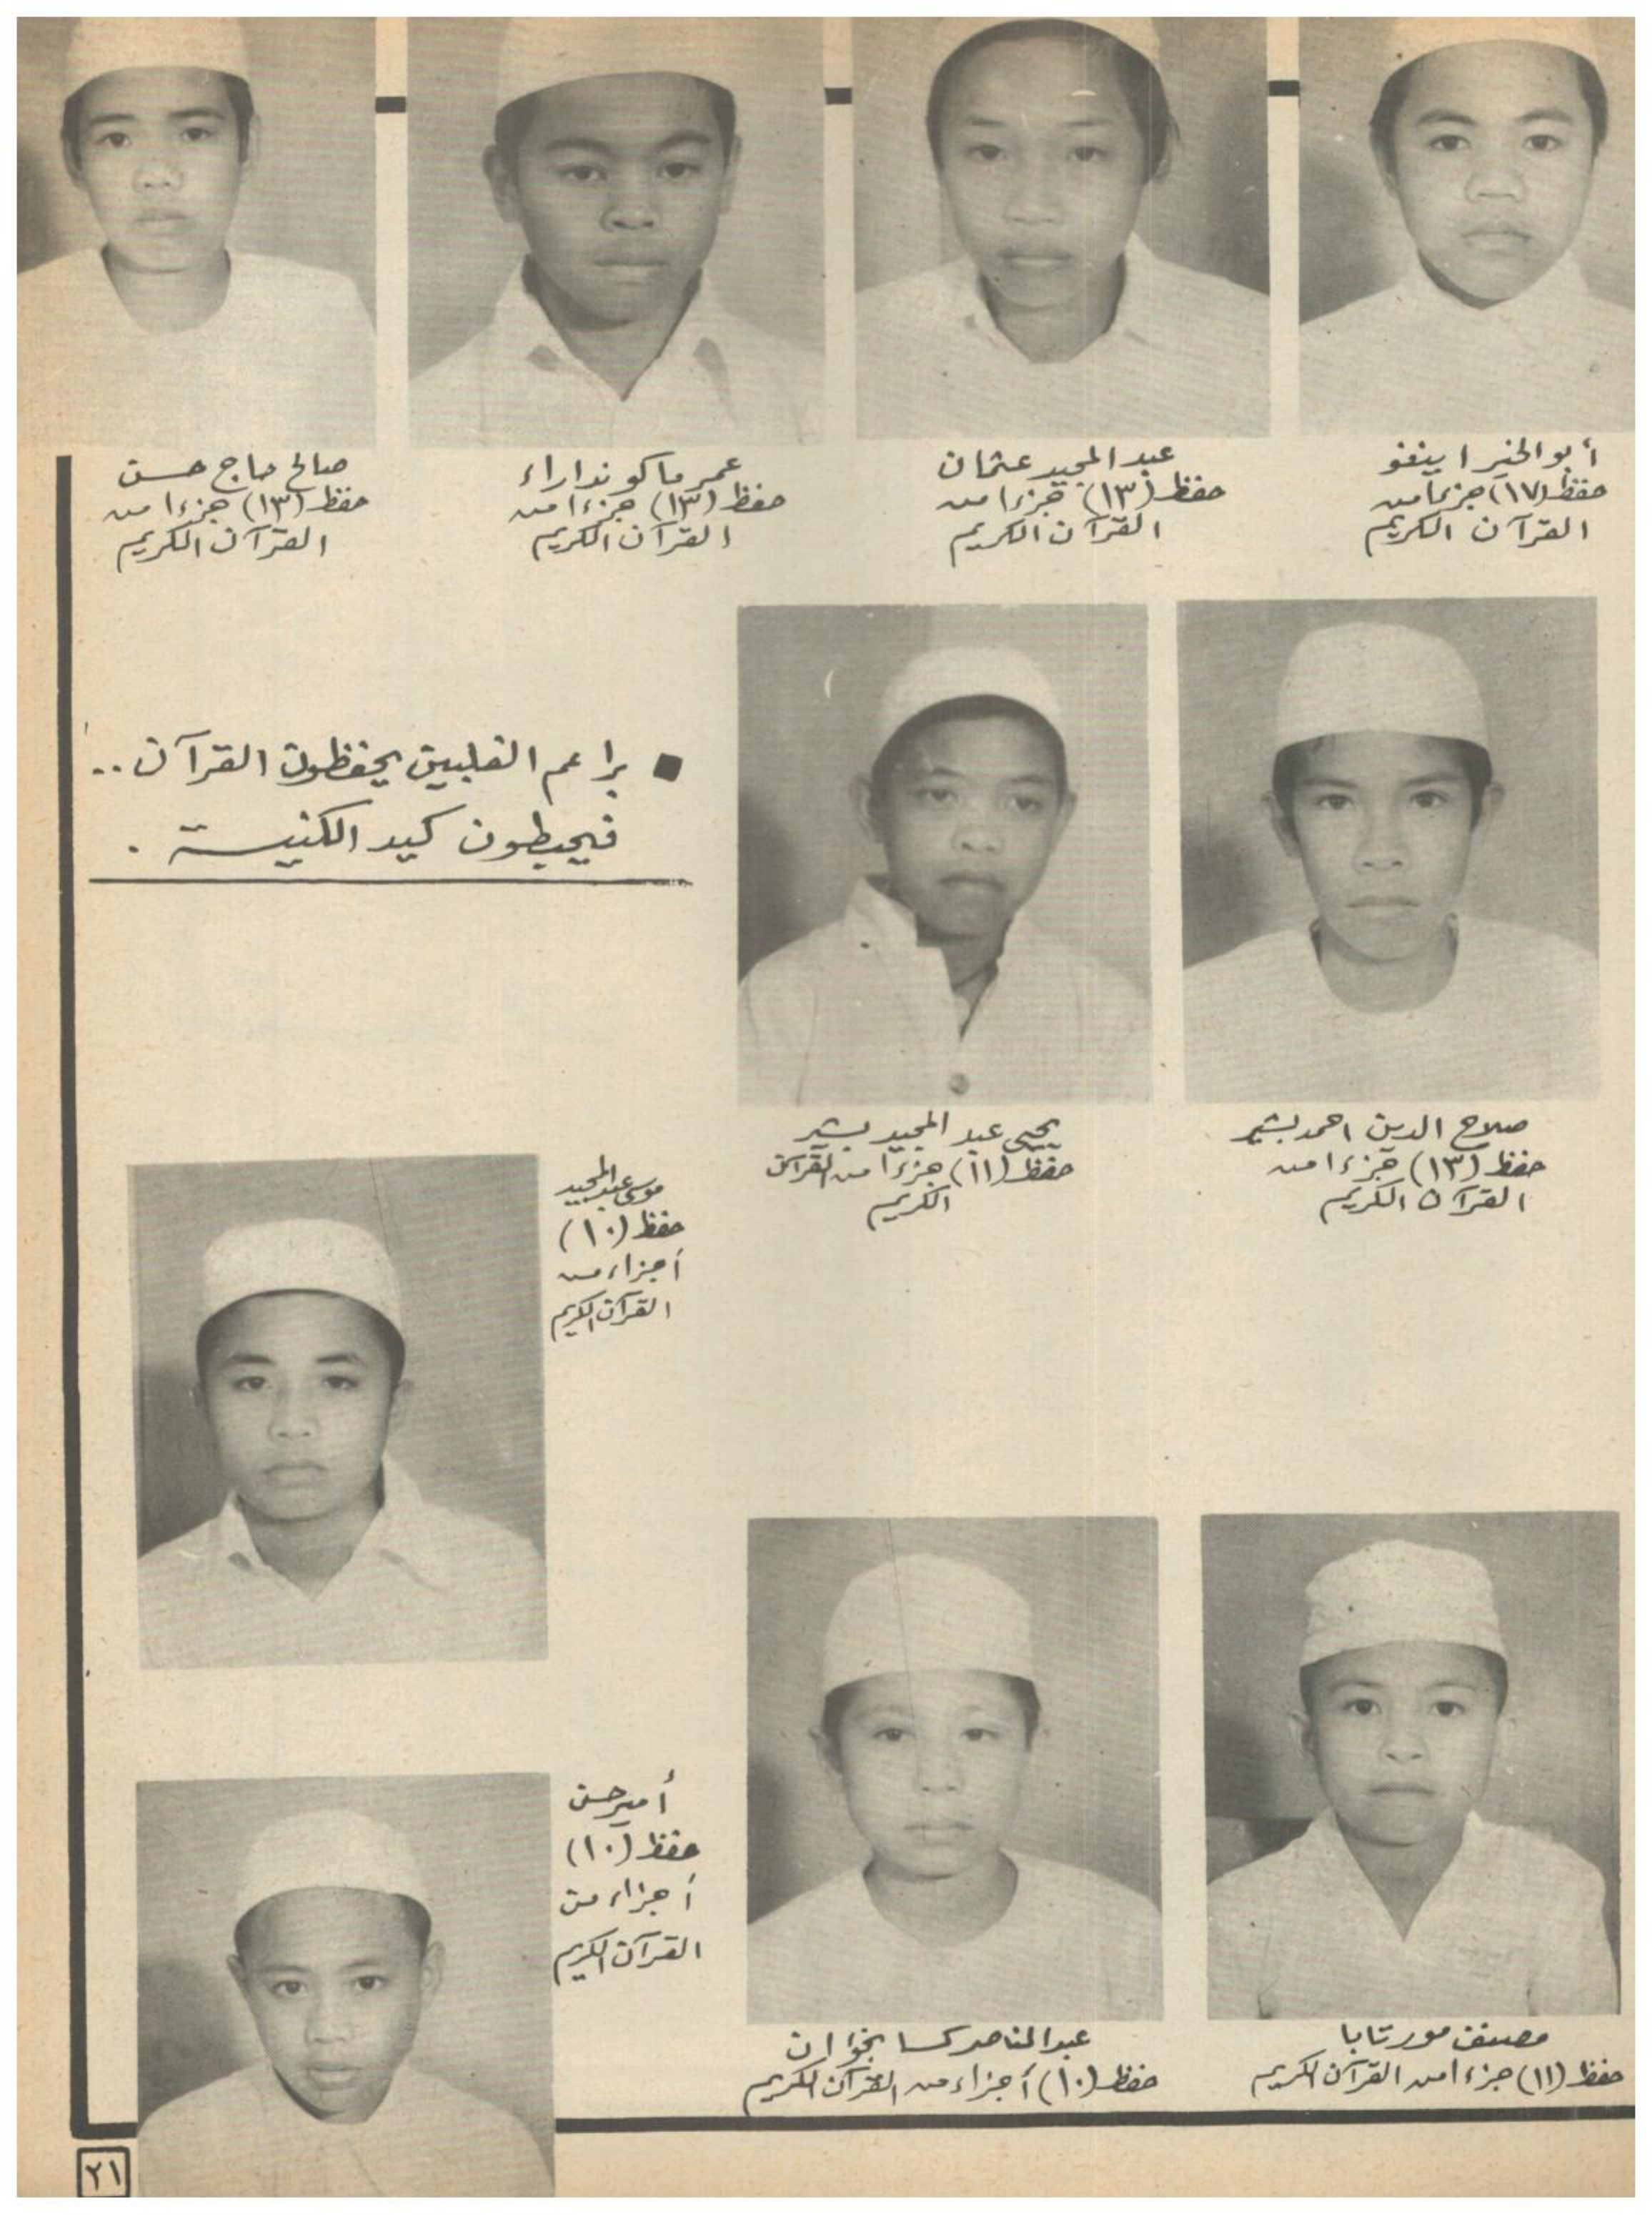 أبو الخير اينفو
حفظ (١٧) جزءا من
القرآن الكريم
عبد المجيد عثمان
حفظ (١٣) جزءا من
القرآن الكريم
عمر ماكو نداراء
حفظ (١٣) جزءا من
القرآن الكريم
صالح حاج حسن
حفظ (١٣) جزءا من
القرآن الكريم
براعم الفلبين يحفظون القرآن ..
فيحبطون كيد الكنيسة .
صلاح الدين احمد بشير
حفظ (١٣) جزءا من
القرآن الكريم
يحيى عبد المجيد بشير
حفظ (١١) جزءا من القرآن
الكريم
موسى عبد المجيد
حفظ (١٠)
أجزاء من
القرآن الكريم
مصنف مورتابا
حفظ (١١) جزءا من القرآن الكريم
عبد الناصر كسا
حفظ (١٠) أجزاء من القرآن الكريم
أمير حسن
حفظ (١٠)
أجزاء من
القرآن الكريم
٢١